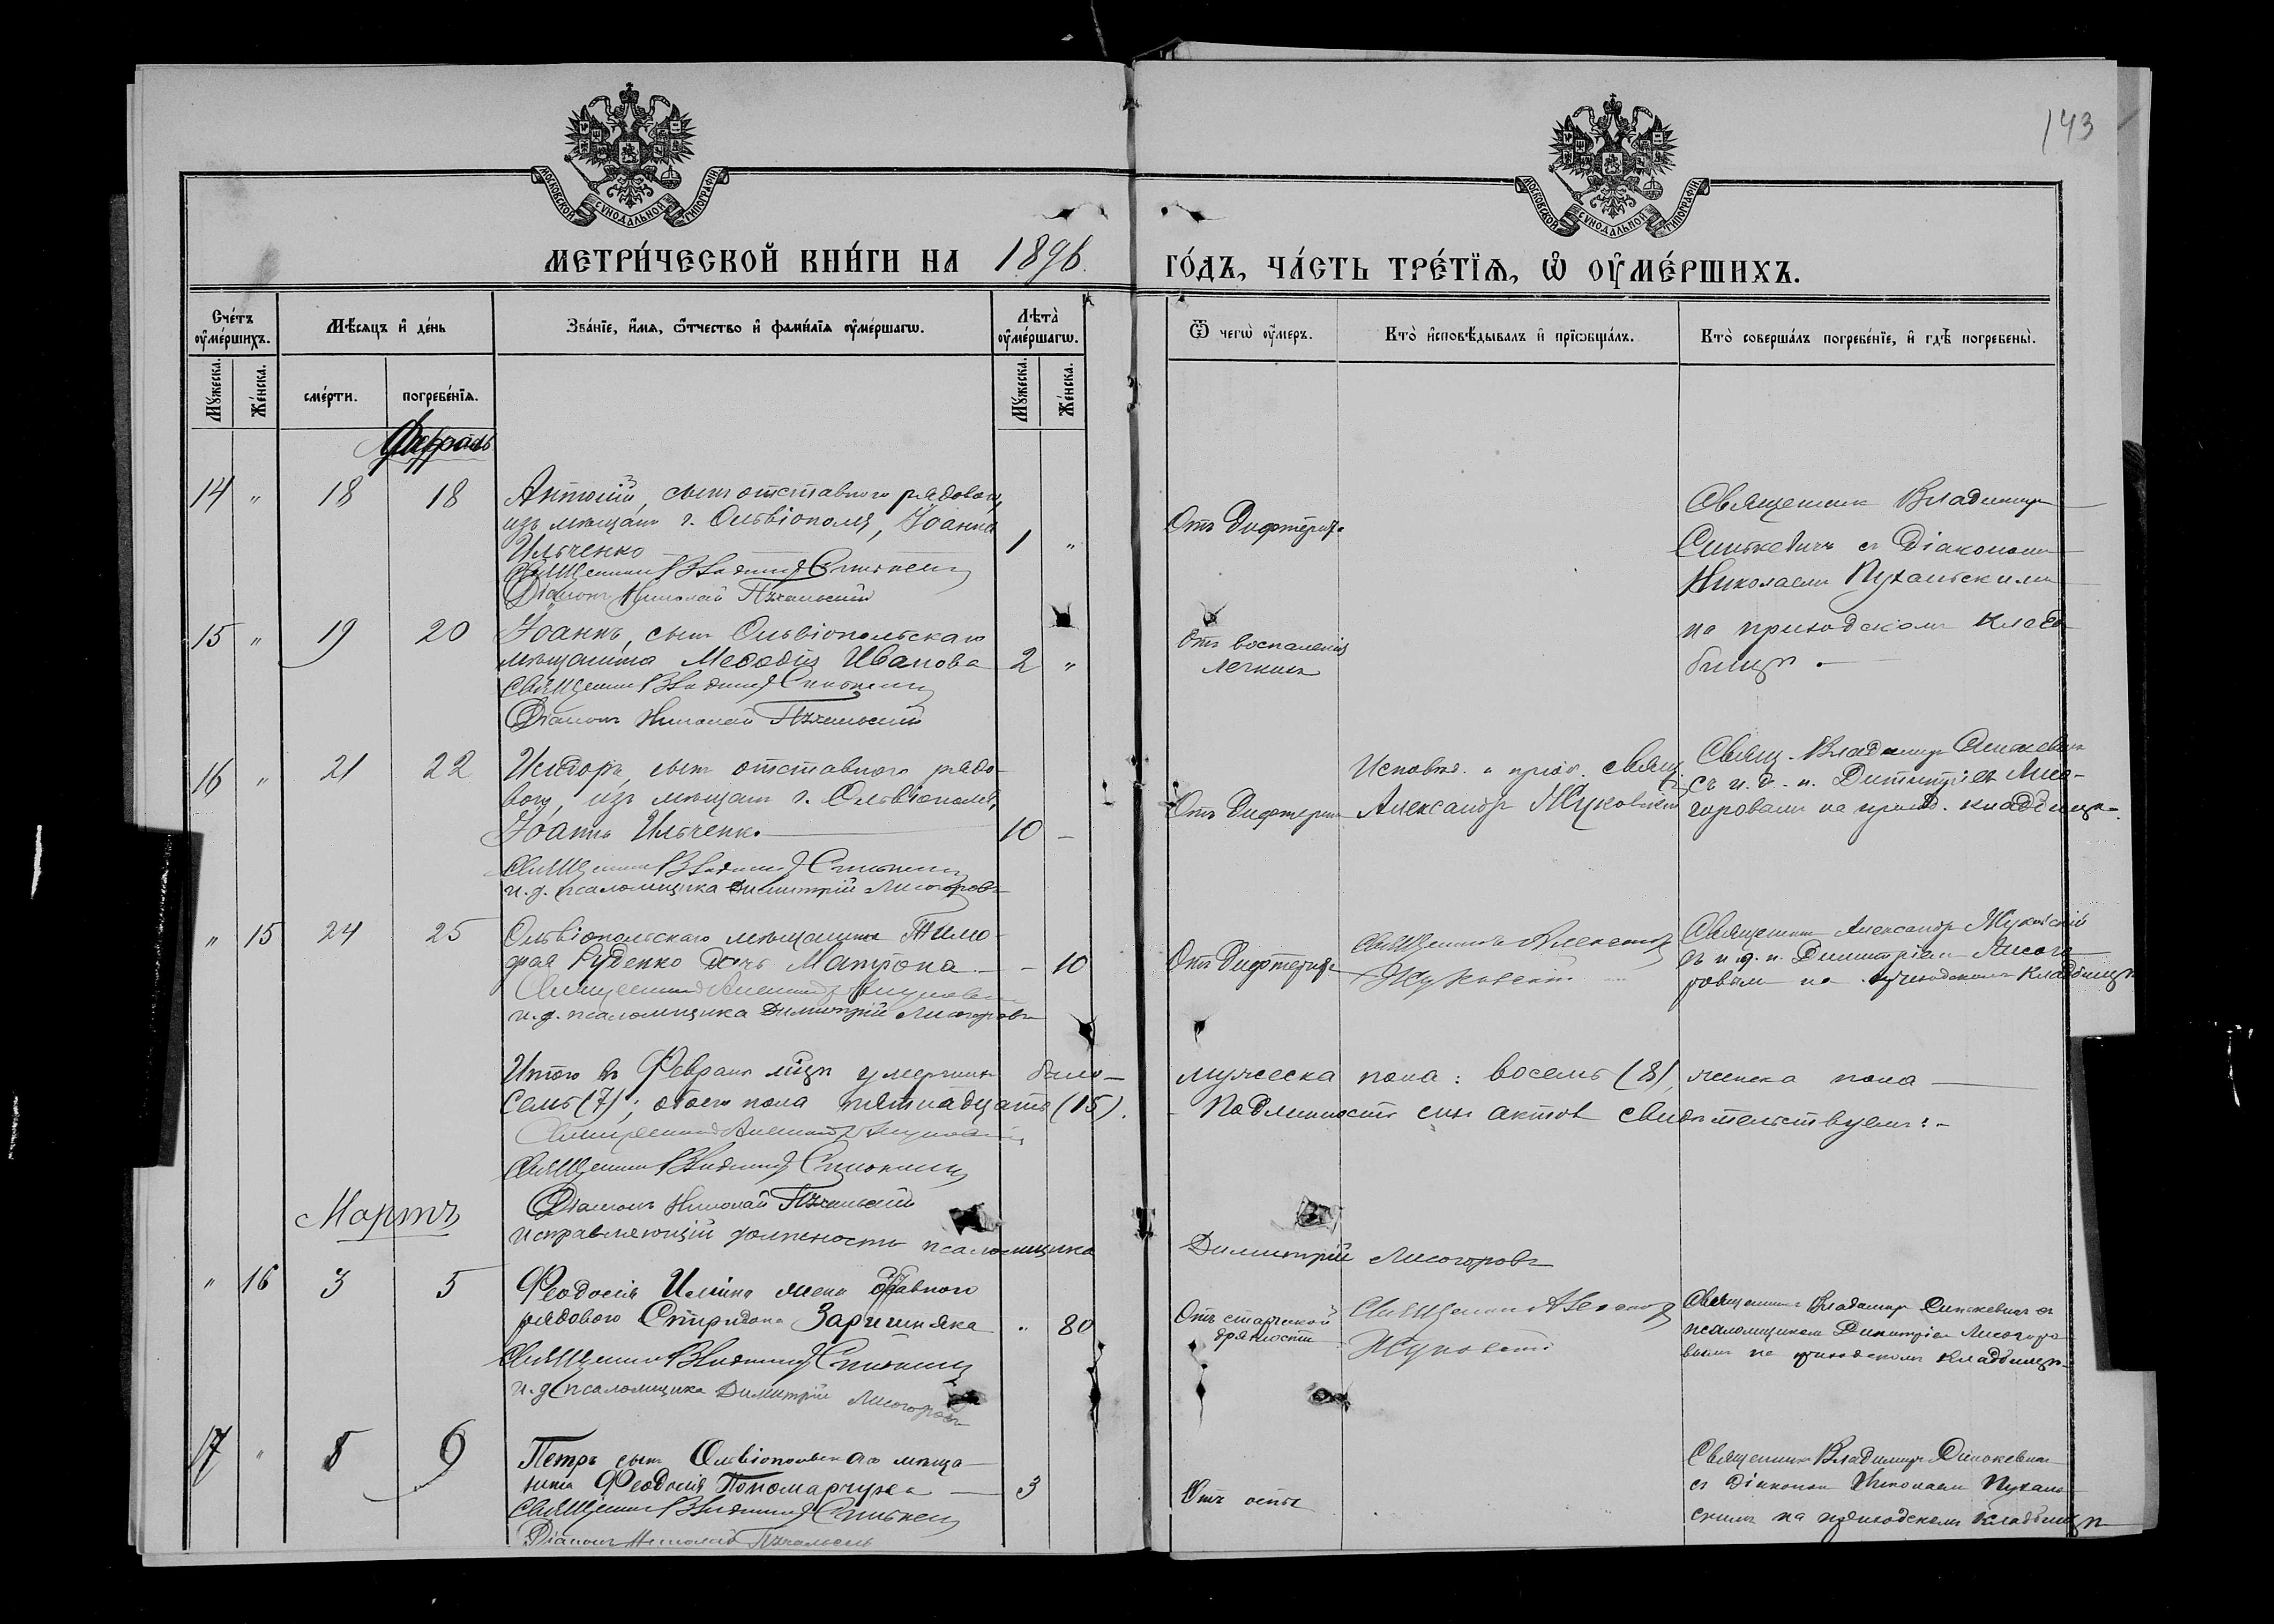 143
МОСКОВСКОЙ СѴНОДАЛЬНОЙ ТИПОГРАФІИ
МОСКОВСКОЙ СѴНОДАЛЬНОЙ ТИПОГРАФІИ
МЕТРИ́ЧЕСКОЙ КНИ́ГИ НА 1896
ГО́ДЪ, ЧА́СТЬ ТРЕ́ТЇѦ, Ѽ ОУ҆МЕ́РШИХЪ.
Сче́тъ оу҆ме́ршихъ.
Мѣ́сяцъ и҆ де́нь
Зва́нїе, и҆́мя, ѻ҆́тчество и҆ фами́лїя оу҆ме́ршагѡ.
Лѣта̀ оу҆ме́ршагѡ.
Ѿ чегѡ̀ оу҆́меръ.
Кто̀ и҆сповѣ́дывалъ и҆ прїѡбща́лъ.
Кто̀ соверша́лъ погребе́нїе, и҆ гдѣ̀ погребены̀.
Мꙋ́жеска. Же́нска. сме́рти. погребе́нїя. Мꙋ́жеска. Же́нска.
Февраль
14 " 18 18
Антоній, сынъ отставного рядового,
изъ мѣщанъ г. Ольвіополя, Іоанна
Ильченко 1 "
Діаконъ Николай Пухальскій
Отъ Дифтерита
Священникъ Владимиръ
Синькевичъ съ Діакономъ
Николаемъ Пухальскимъ
на приходскомъ клад-
бищѣ.
15 " 19 20
Іоаннъ, сынъ Ольвіопольскаго
мѣщанина Меѳодія Иванова 2 "
Діаконъ Николай Пухальскій
Отъ воспаленія
легкихъ
16 " 21 22
Исидоръ, сынъ отставного рядо-
вого, изъ мѣщанъ г. Ольвіополя,
Іоанна Ильченко 10 –
и. д. псаломщика Димитрій Лисогоровъ
Отъ Дифтерита
Исповѣд. и пріоб. Свящ.
Александръ Жуковскій
Свящ. Владимиръ Синькевичъ
съ и. д. п. Димитріемъ Лисо-
горовымъ на приход. кладбищѣ.
" 15 24 25
Ольвіопольскаго мѣщанина Тимо-
фея Руденко дочь Матрона – 10
Священникъ Александръ Жуковскій
и. д. псаломщика Димитрій Лисогоровъ
Отъ Дифтерита
Священникъ Александръ
Жуковскій
Священникъ Александръ Жуковскій
съ и. д. п. Димитріемъ Лисого-
ровымъ на приходскомъ кладбищѣ
Итого въ Февралѣ м-цѣ умершихъ было – мужеска пола: восемь (8), женска пола –
семь (7); обоего пола пятнадцать (15). – Подлинность сихъ актовъ свидѣтельствуемъ: –
Священникъ Александръ Жуковскій
Священникъ Владимиръ Синькевичъ
Діаконъ Николай Пухальскій
исправляющій должность псаломщика Димитрій Лисогоровъ
Мартъ
" 16 3 5
Феодосія жена отставного
рядового Спиридона " 80
Священникъ Владимиръ Синькевичъ
и. д. псаломщика Димитрій Лисогоровъ
Отъ старческой
дряхлости
Священникъ Александръ
Жуковскій
Священникъ Владимиръ Синькевичъ съ
псаломщикомъ Димитріемъ Лисогоро-
вымъ на приходскомъ кладбищѣ
17 " 8 9
Петръ сынъ Ольвіопольскаго мѣща-
нина Феодосія Пономарчука – 3
Священникъ Владимиръ Синькевичъ
Діаконъ Николай Пухальскій
Отъ оспы
Священникъ Владимиръ Синькевичъ
съ Діакономъ Николаемъ Пухаль-
скимъ на приходскомъ кладбищѣ